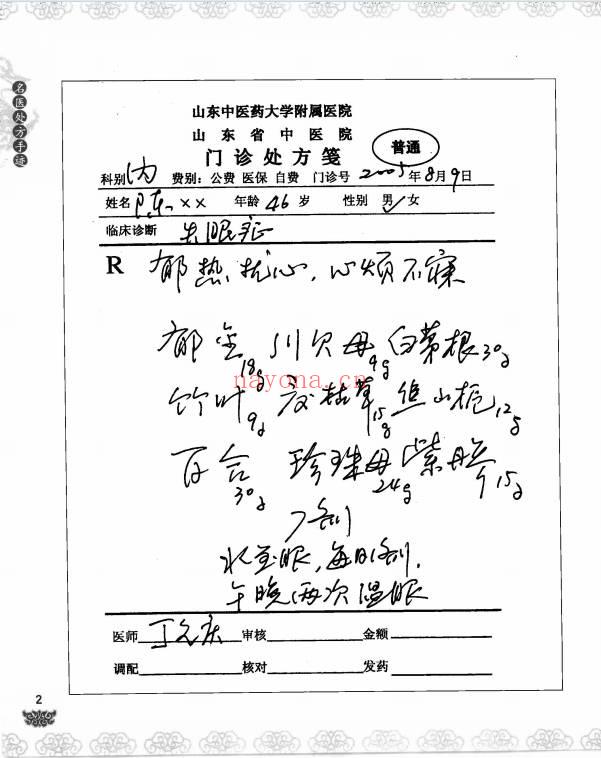 名医处方手迹
山东中医药大学附属医院
山东省中医院
门诊处方笺
普通
科别 内 费别:公费 医保 自费 门诊号 2005年8月9日
姓名 陈×× 年龄 46 岁 性别 男✓女
临床诊断 失眠症
R 郁热扰心,心烦不寐
郁金18g 川贝母9g 白茅根30g
竹叶9g 夏枯草15g 焦山栀12g
百合30g 珍珠母24g 紫丹参15g
nayona.cn
7剂
水煎服,每日1剂,
午晚两次温服
医师 丁元庆 审核 金额
调配 核对 发药
2